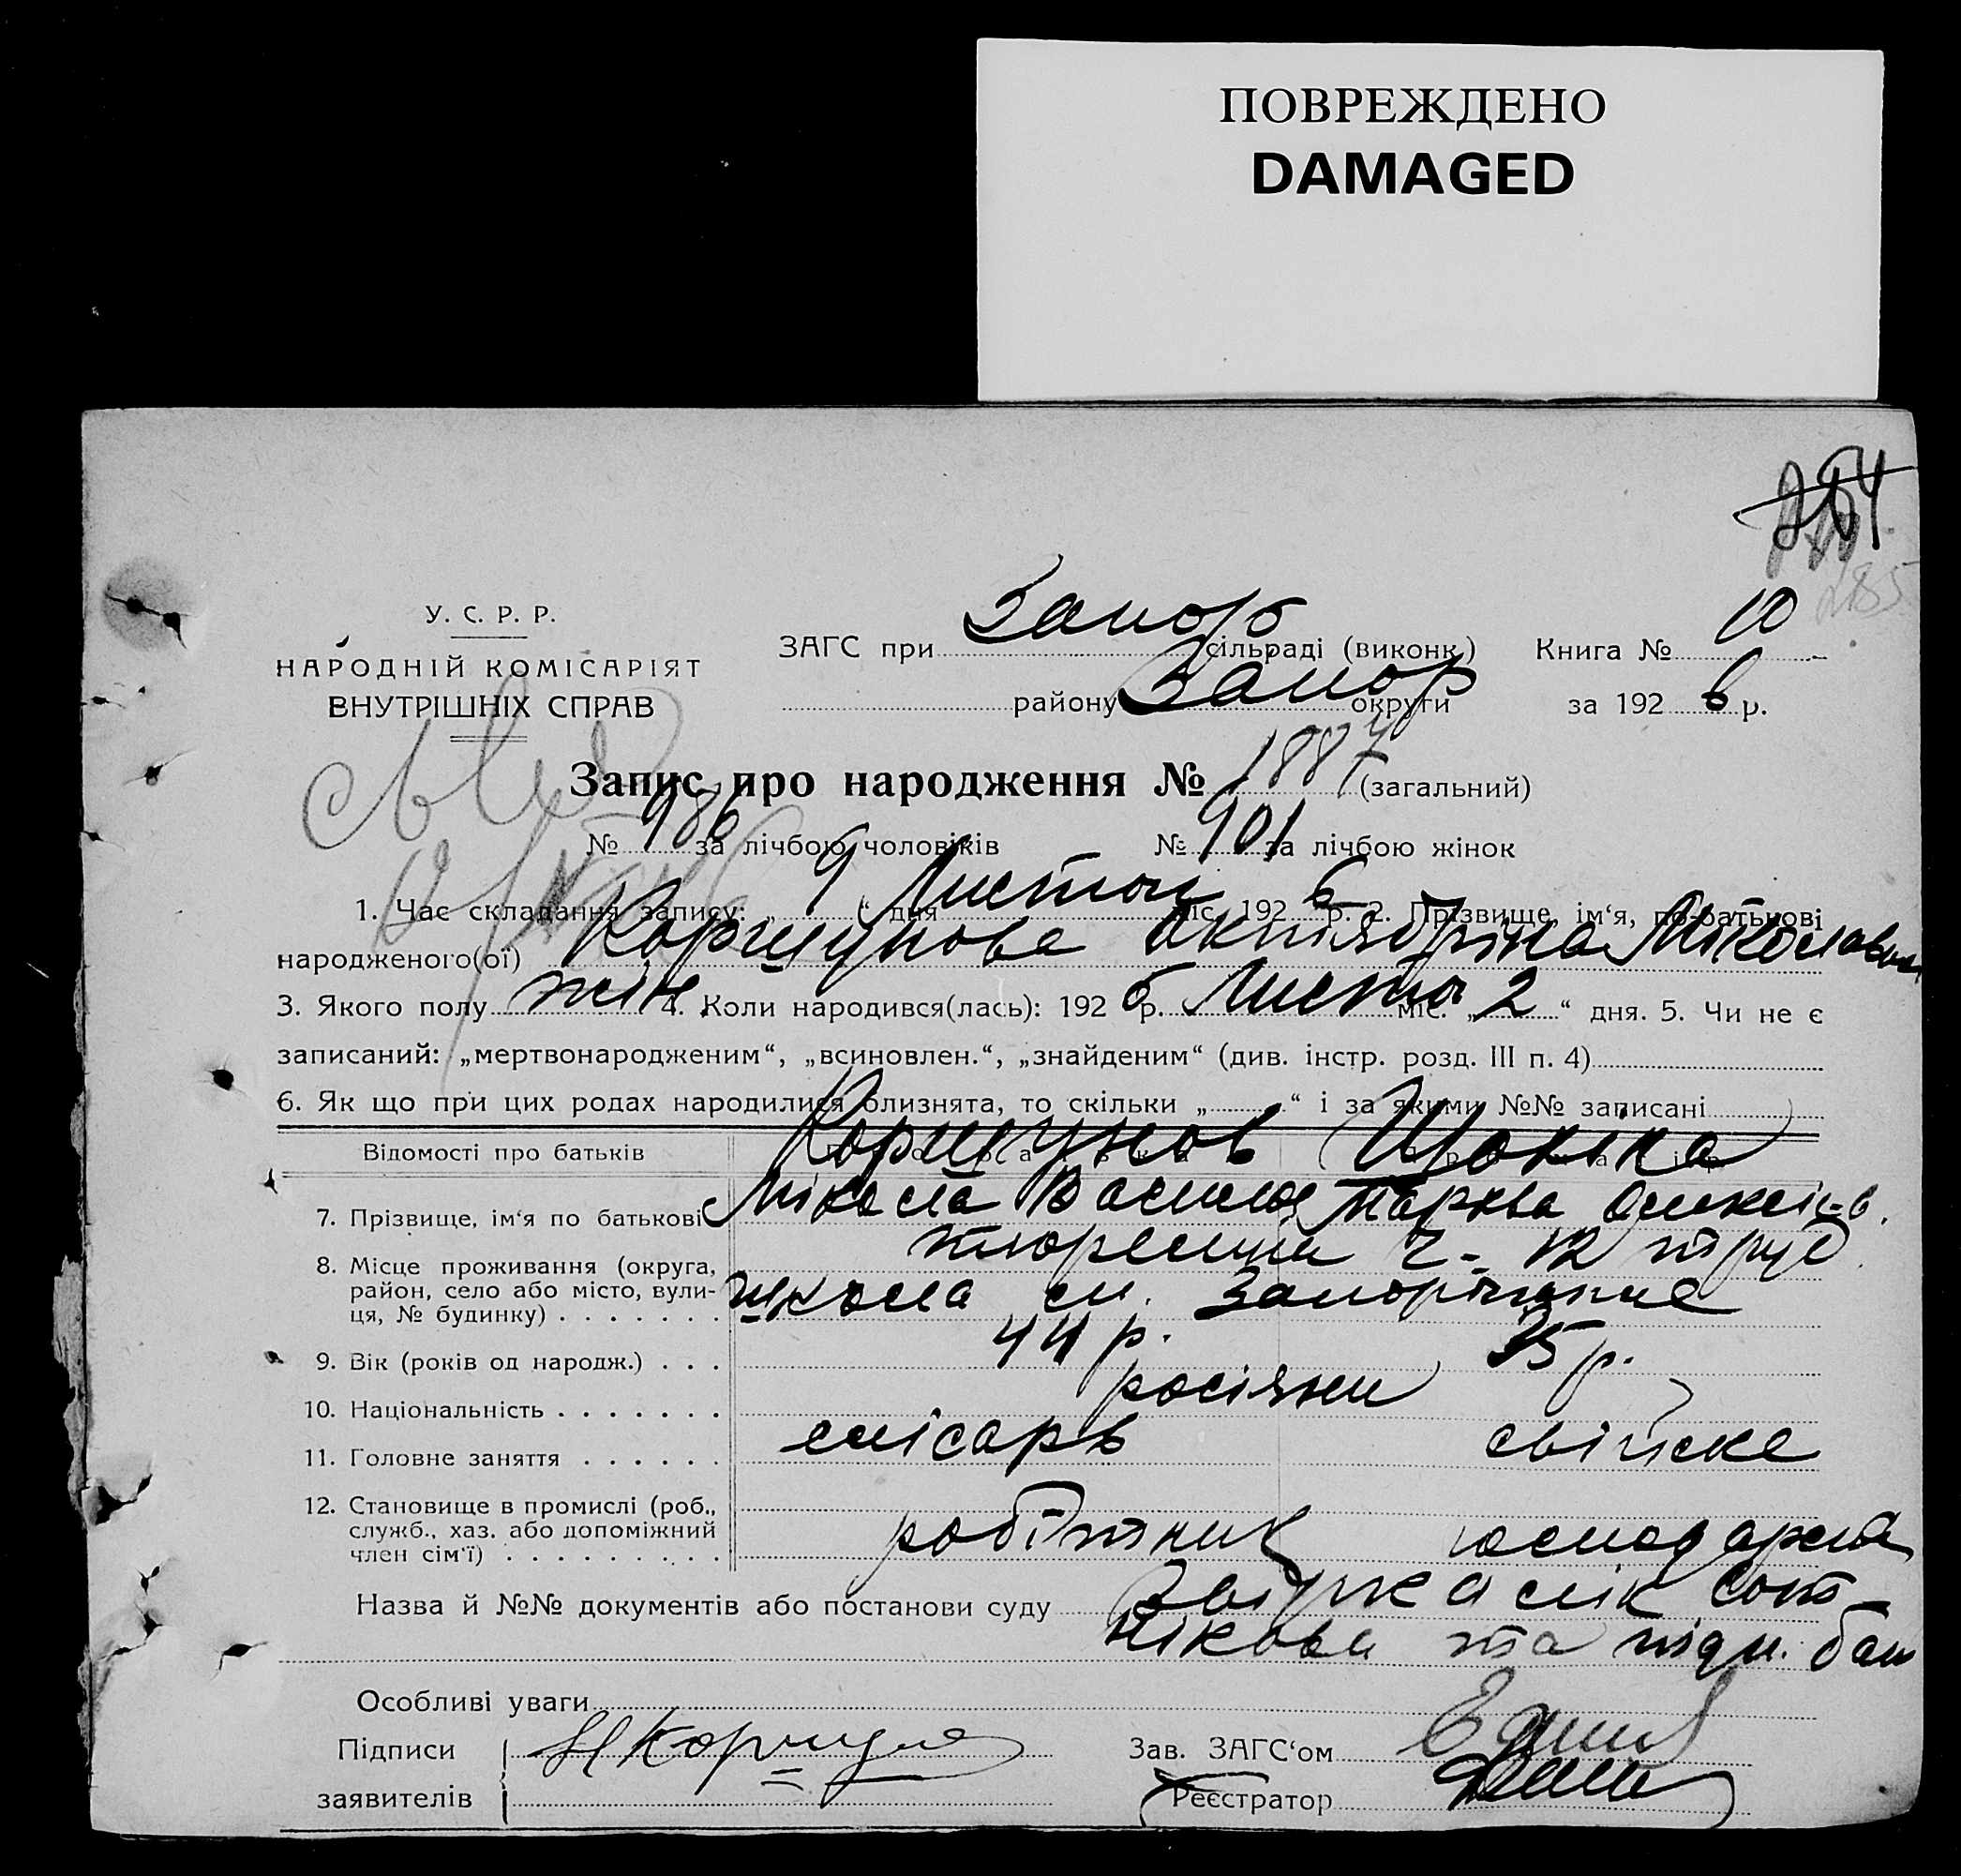 ПОВРЕЖДЕНО
DAMAGED
У. С. Р. Р.
НАРОДНІЙ КОМІСАРІЯТ
ВНУТРІШНІХ СПРАВ
ЗАГС при Запор сільраді (виконк.) Книга № 10
району Запор округи за 192 6 р.
Запис про народження № 1887 (загальний)
№ 986 за лічбою чоловіків № 901 за лічбою жінок
1. Час складання запису: „ 9 “ дня Листоп міс. 192 6 р. 2. Прізвище, ім‘я, по-батькові
народженого(ої) Коршунова Октябріна Миколаевна
3. Якого полу жін. 4. Коли народився(лась): 192 6 р. Листоп міс. „ 2 “ дня. 5. Чи не є
записаний: „мертвонародженим“, „всиновлен.“, „знайденим“ (див. інстр. розд. III п. 4)
6. Як що при цих родах народилися близнята, то скільки „ “ і за якими №№ записані
Відомості про батьків Коршунов
7. Прізвище, ім‘я по батькові Мікола Васильов Марква Олексіев.
8. Місце проживання (округа,
район, село або місто, вули-
ця, № будинку) школа см. Запоріжжя
9. Вік (років од народж.) 44 р. 35 р.
10. Національність росіяни
11. Головне заняття слісарь свійске
12. Становище в промислі (роб.,
служб., хаз. або допоміжний
член сім‘ї) робітник господарка
Назва й №№ документів або постанови суду Звірка лік Сот-
нікова та підп. бат
Особливі уваги
Підписи
заявителів
Зав. ЗАГС‘ом
Реєстратор